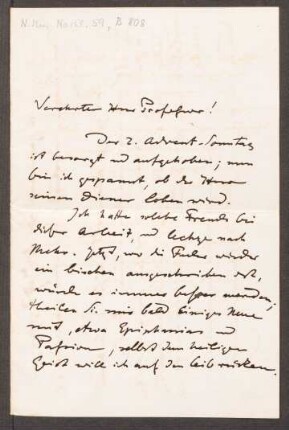 N. Mus. Nachl. 39, B 808
Verehrter Herr Professor!
Der 2. Advent-Sonntag
ist besorgt und aufgehoben; nun
bin ich gespannt, ob der Herr
seinen Diener loben wird.
Ich hatte solche Freude bei
dieser Arbeit, und lechze nach
Mehr. Jetzt, wo die Feder wieder
ein bischen ausgeschrieben ist,
würde es immer besser werden;
theilen Sie mir bald Einiges Neue
mit, etwa Epiphanias und
Passion, selbst dem heiligen
Geist will ich auf den Leib rücken.